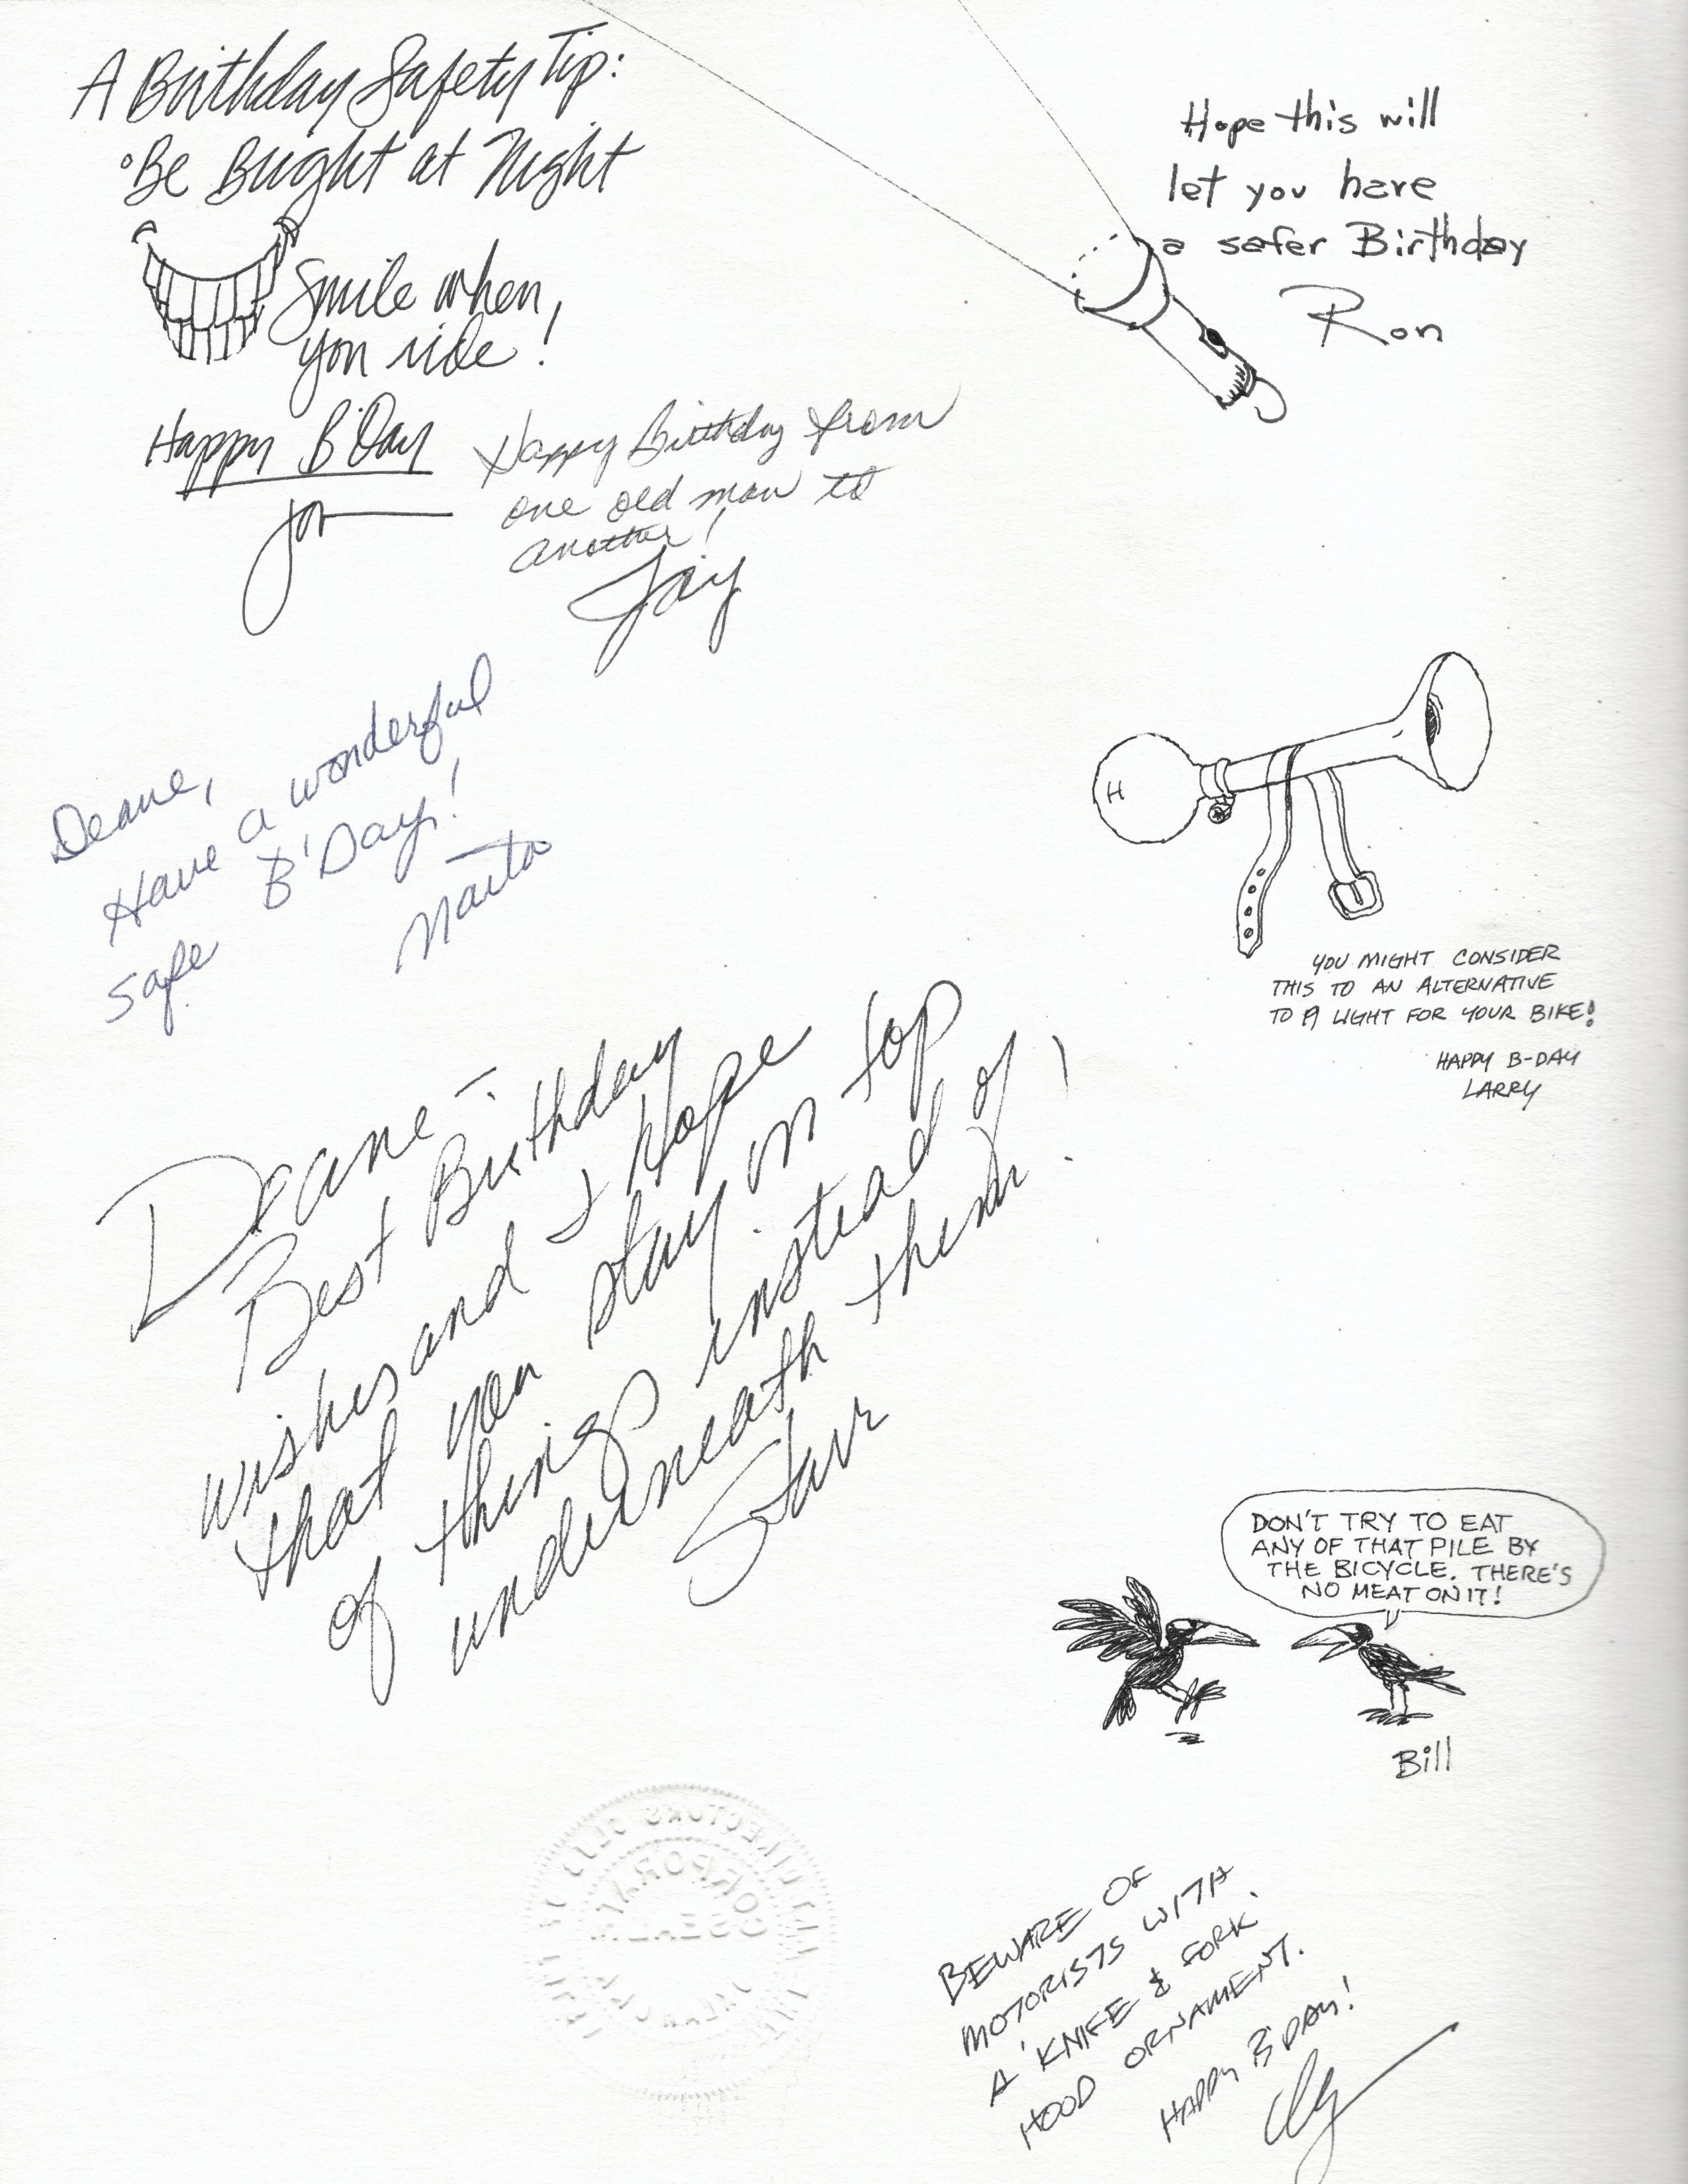 A Birthday Safety Tip:
°Be Bright at Night
Smile when
you ride!
Happy B'Day
Jon
Happy Birthday from
one old man to
another!
Jay
Hope this will
let you have
a safer Birthday
Ron
Deane,
Have a wonderful
safe B'Day!
H
YOU MIGHT CONSIDER
THIS TO AN ALTERNATIVE
TO A LIGHT FOR YOUR BIKE!
HAPPY B-DAY
LARRY
Deane –
Best Birthday
wishes and I Hope
that you stay on top
of things instead of
underneath them!
Starr
DON'T TRY TO EAT
ANY OF THAT PILE BY
THE BICYCLE. THERE'S
NO MEAT ON IT!
Bill
BEWARE OF
MOTORISTS WITH
A 'KNIFE & FORK'
HOOD ORNAMENT.
HAPPY B'DAY!
CORPORATE
SEAL